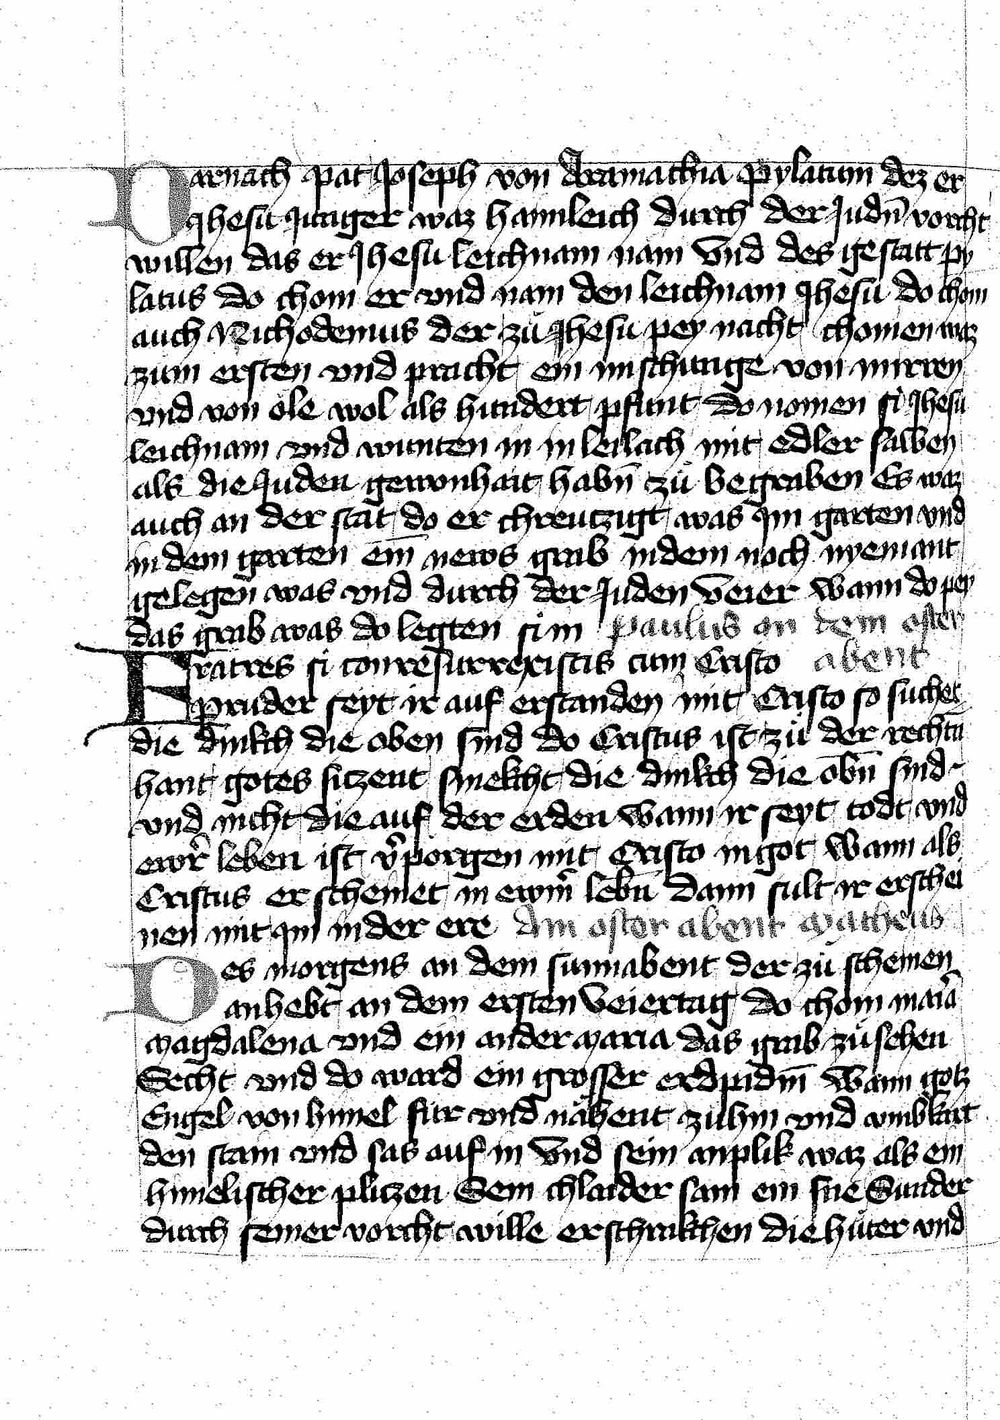 Darnach pat Joseph von Aramathia Pylatum dez er
Jhesu Junger waz haimleich durch der Judn̄ vorcht
willen das er Jhesu leichnam nam Vnd des gestatt py
latus do chom er vnd nam den leichnam Jhesu do chom
auch Nichodemus der zů Jhesu pey nacht chomen waz
zum ersten vnd pracht ein mischunge von mirren
vnd von ole wol als hundert pfunt Do nomen si Jhesu
leichnam vnd wunten in in leilach mit edler salben
als die Juden gewonhait habn̄ zů begraben Es waz
auch an der stat do er chreutzigt was Jm garten vnd
in dem garten ein̄ news grab in dem noch nyemant
gelegen was vnd durch der Juden Veier Wann do pey
das grab was do legten si in Paulus an dem oster
Fratres si conresurrexistis cum Cristo abent
Pruder seyt ir auf erstanden mit Cristo so suchet
die dinkch die oben sind do Cristus ist zů der rechtn̄
hant gotes siczent smekcht die dinkch die obn̄ sind
vnd nicht die auf der erden Wann ir seyt todt vnd
ewr̄ leben ist v̄porgen mit Cristo in got Wann als
Cristus erscheinet in ewrm̄ lebn̄ Dann sult ir erschei
nen mit Jm in der ere Am oster abent Matheus
Des morgens an dem sunnabent der zů scheinen
anhebt an dem ersten Veiertag do chom maria
Magdalena vnd ein ander Maria das grab zů sehen
Secht vnd do ward ein grosser erdpidm̄ Wann gotz
Engel von himel fur vnd nahent zuhin vnd vmbkart
den stain vnd sas auf in Vnd sein anplik waz als ein
himelischer pliczen Sein chlaider sam ein sne Sunder
durch seiner vorcht wille erschrakchen die hüter vnd